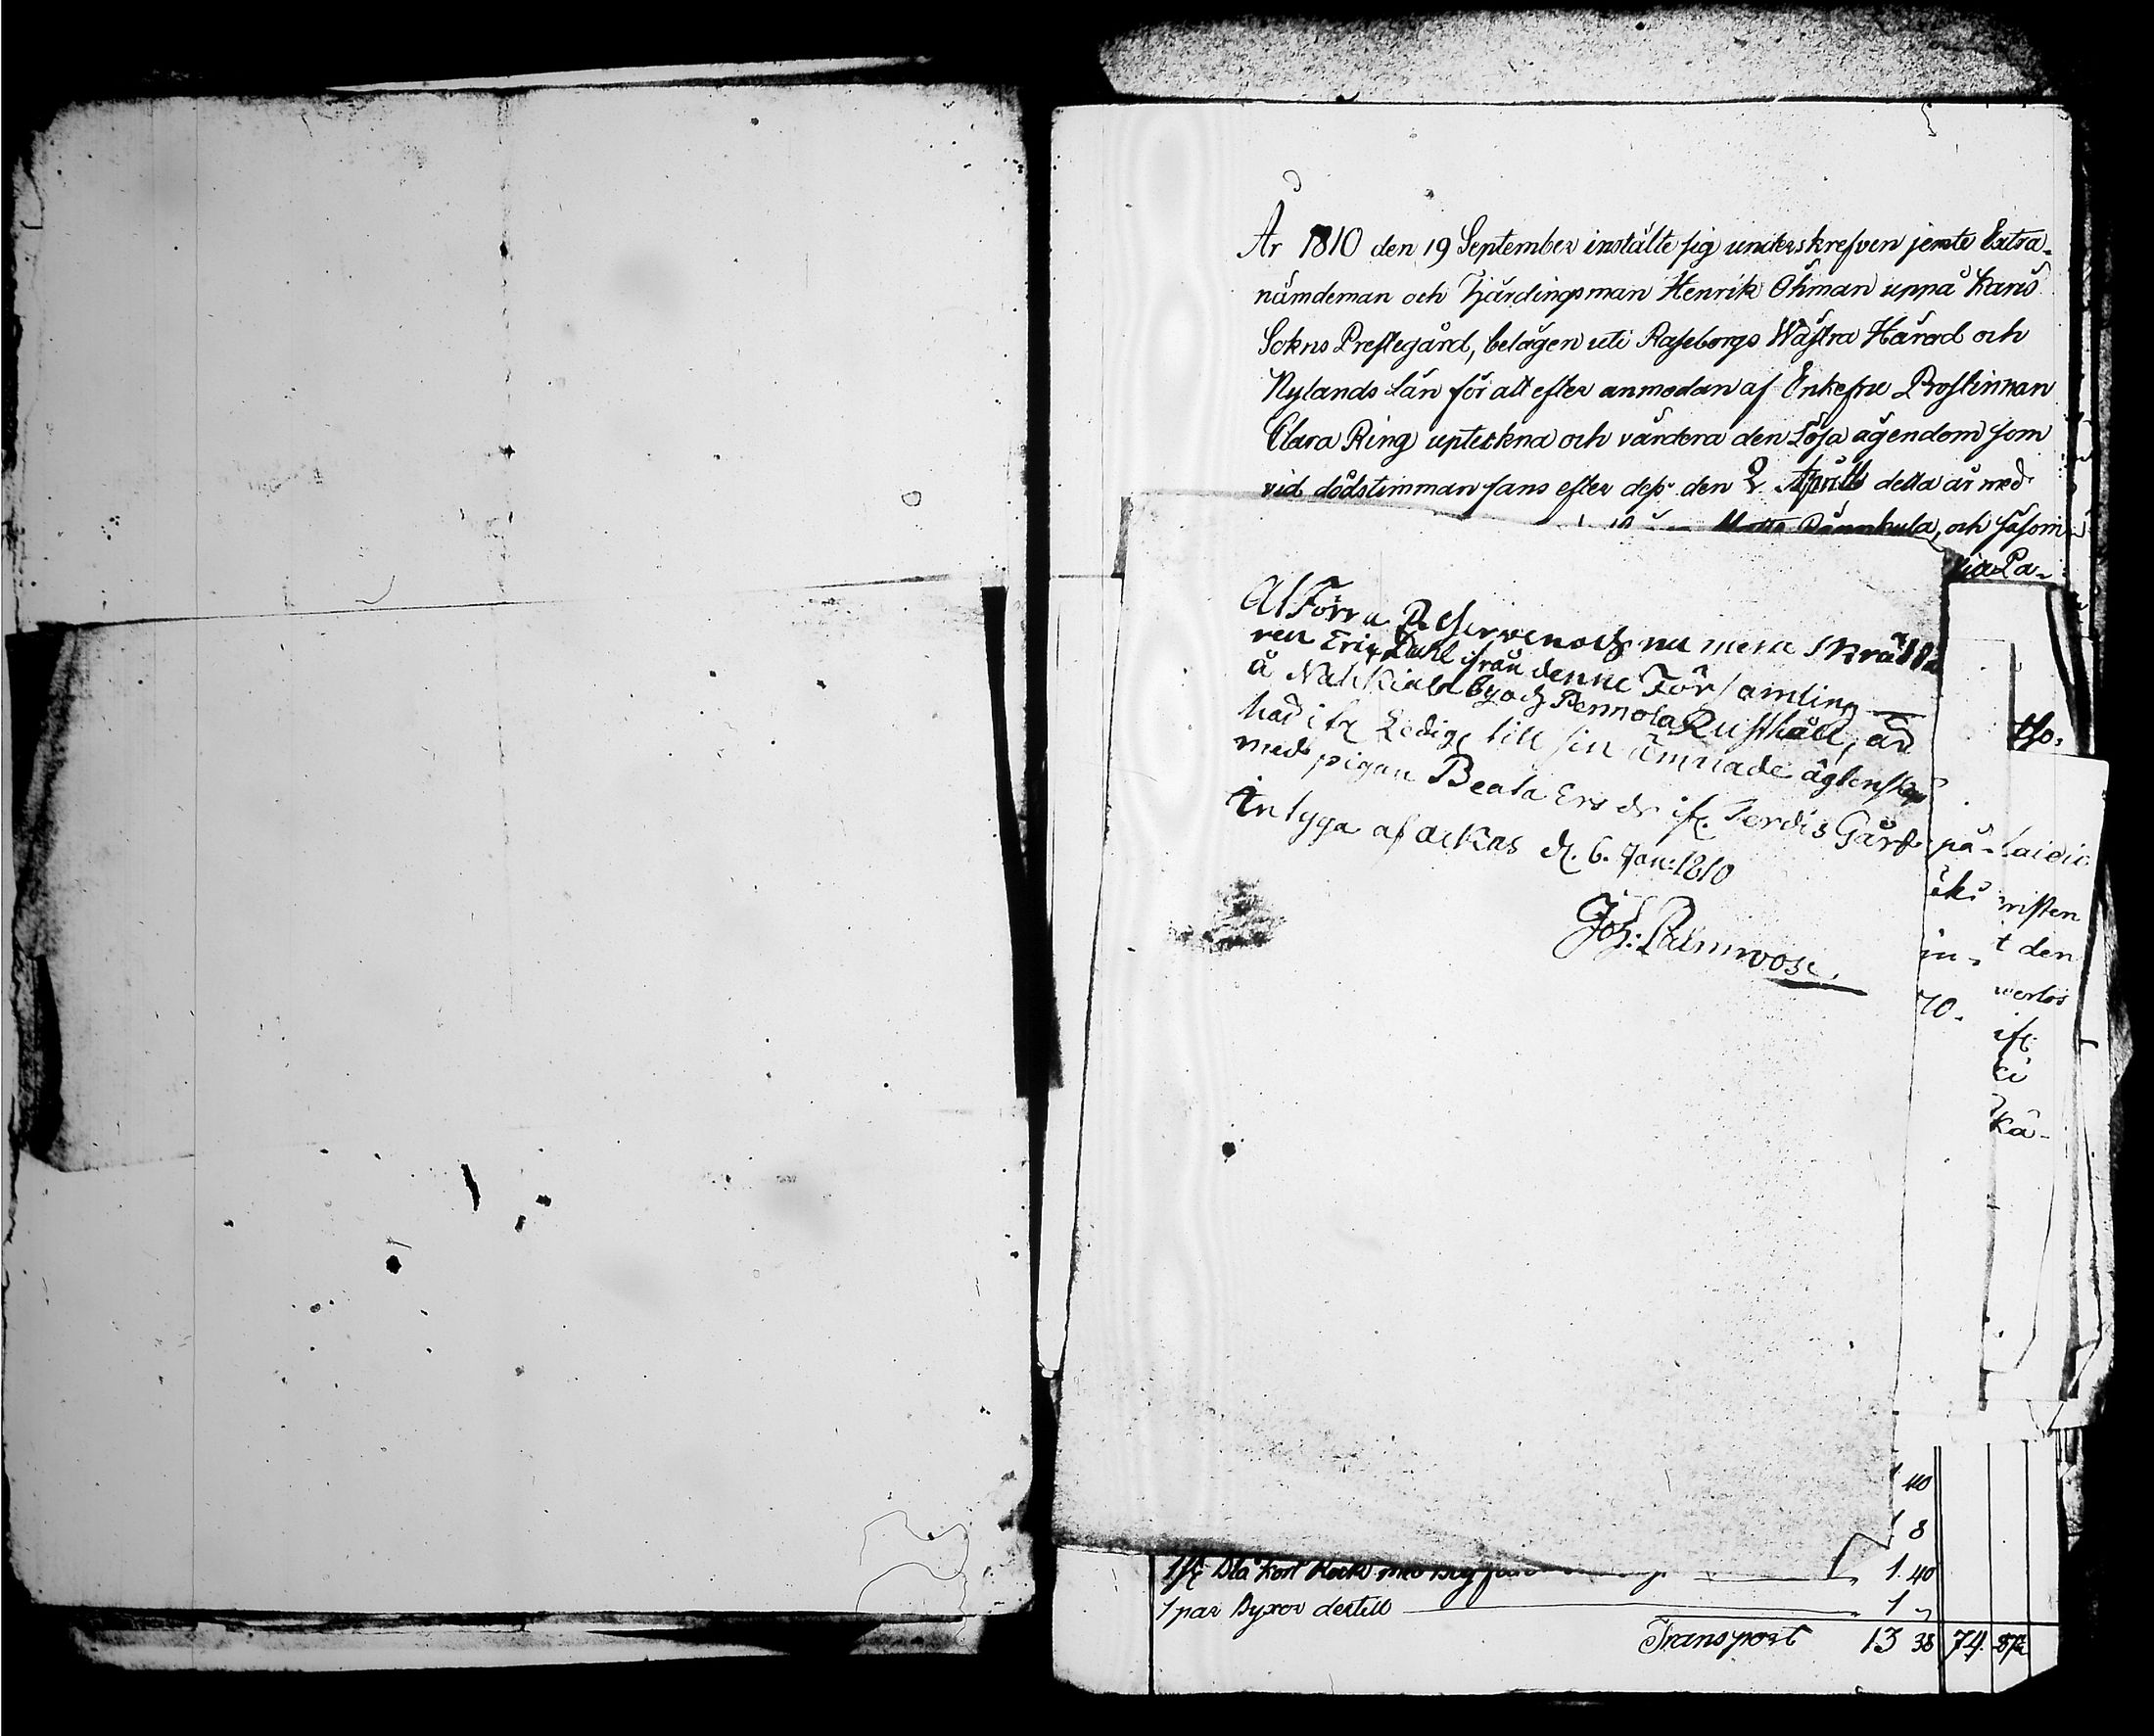 År 1810 den 19 September instälte sig underskrefven jemte Extra-
nämdeman och Fjärdingsman Henrik Öhman uppå Karis
Sokns Prestegård, belägen uti Raseborgs Wästra Härad och
Nylands Län för att efter anmodan af Enkefru Prostinnan
Clara Ring upteckna och värdera den Lösa ägendom som
vid dödstimman fans efter dess den 2 Aprill detta år med
och såsom
At Förra Reserven och nu mera Skrädda
ren Eric Dahl ifrån denne Församling
å Nahkiala by och Pennola Rusthåll, är
hos oss Ledig till sin ämnade ägtenskap
med pigan Beata Ers dr ifr. Gård
intygas af d. 6. Jan: 1810
Joh: Palmroos
på-
in-
70.
t den
ifr
kä-
40
8
1 st Blå kort Rock med 1.40
1 par Byxor dertill 1 "
Transport 13 38 74.